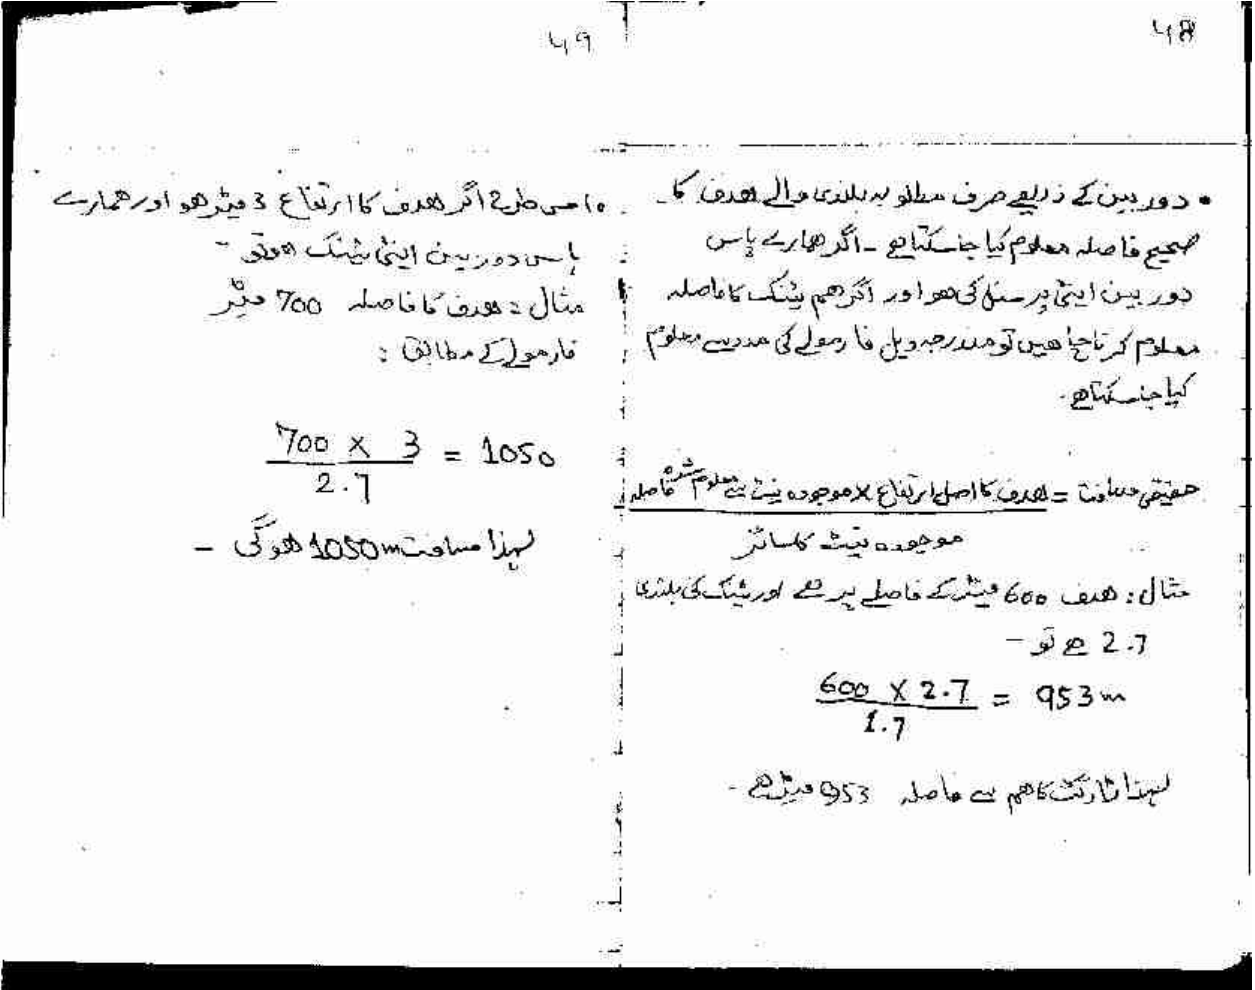 48
• دوربین کے ذریعے صرف مطلوبہ بلندی والے ھدف کا
صحیح فاصلہ معلوم کیا جاسکتا ھے ۔ اگر ھمارے پاس
دوربین اینٹی پرسنل کی ھو اور اگر ھم ٹینک کا فاصلہ
معلوم کرنا چاھیں تو مندرجہ ذیل فارمولے کی مدد سے معلوم
کیا جاسکتا ھے ۔
حقیقی مسافت = ھدف کا اصل ارتفاع × موجودہ نیٹ سے معلوم شدہ فاصلہ
موجودہ نیٹ کا سائز
مثال : ھدف 600 میٹر کے فاصلے پر ھے اور ٹینک کی بلندی
2.7 ھے تو –
600 X 2.7 = 953 m
1.7
لہذا ٹارگٹ کا ھم سے فاصلہ 953 میٹر ھے ۔
49
• اسی طرح اگر ھدف کا ارتفاع 3 میٹر ھو اور ھمارے
پاس دوربین اینٹی ٹینک ھوتو –
مثال : ھدف کا فاصلہ 700 میٹر
فارمولے کے مطابق :
700 X 3 = 1050
2.7
لہذا مسافت 1050m ھوگی –